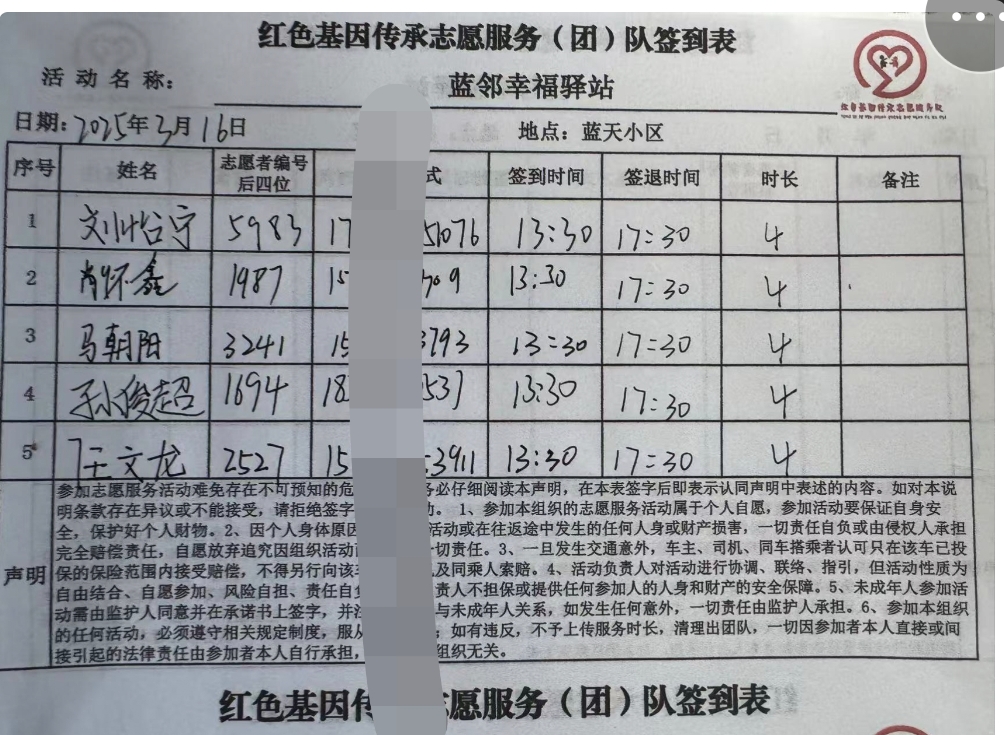 红色基因传承志愿服务（团）队签到表
活动名称： 蓝邻幸福驿站
日期：2025年3月16日 地点：蓝天小区
序号 姓名 志愿者编号后四位 式 签到时间 签退时间 时长 备注
1 刘怡宁 5983 17 51076 13:30 17:30 4
2 肖怀鑫 1987 15 709 13:30 17:30 4
3 马朝阳 3241 15 3793 13:30 17:30 4
4 孙俊超 1694 18 537 13:30 17:30 4
5 王文龙 2527 15 3911 13:30 17:30 4
声明
参加志愿服务活动难免存在不可预知的危 务必仔细阅读本声明，在本表签字后即表示认同声明中表述的内容。如对本说
明条款存在异议或不能接受，请拒绝签字 动。1、参加本组织的志愿服务活动属于个人自愿，参加活动要保证自身安
全，保护好个人财物。2、因个人身体原因 活动或在往返途中发生的任何人身或财产损害，一切责任自负或由侵权人承担
完全赔偿责任，自愿放弃追究因组织活动 一切责任。3、一旦发生交通意外，车主、司机、同车搭乘者认可只在该车已投
保的保险范围内接受赔偿，不得另行向该 及同乘人索赔。4、活动负责人对活动进行协调、联络、指引，但活动性质为
自由结合、自愿参加、风险自担、责任自 责人不担保或提供任何参加人的人身和财产的安全保障。5、未成年人参加活
动需由监护人同意并在承诺书上签字，并 与未成年人关系，如发生任何意外，一切责任由监护人承担。6、参加本组织
的任何活动，必须遵守相关规定制度，服从 ；如有违反，不予上传服务时长，清理出团队，一切因参加者本人直接或间
接引起的法律责任由参加者本人自行承担， 组织无关。
红色基因传 志愿服务（团）队签到表